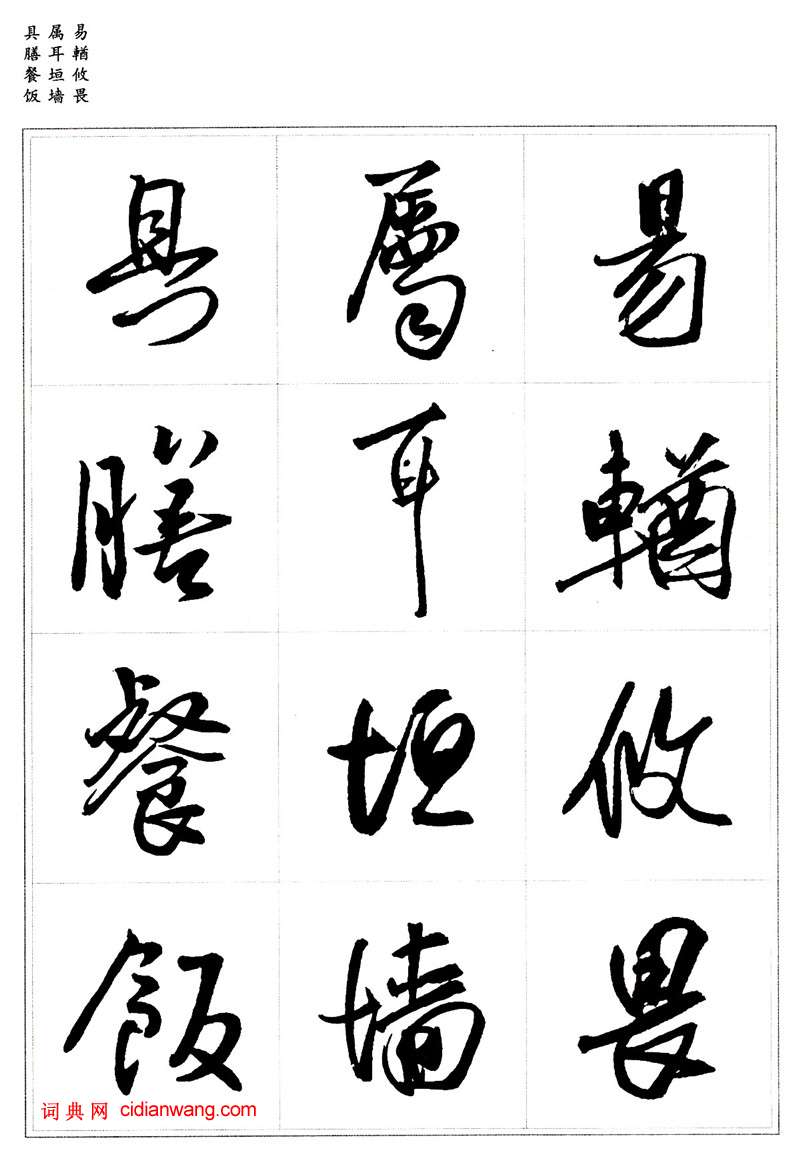 易輶攸畏
属耳垣墙
具膳餐饭
易輶攸畏
屬耳垣墻
具膳餐飯
词典网 cidianwang.com